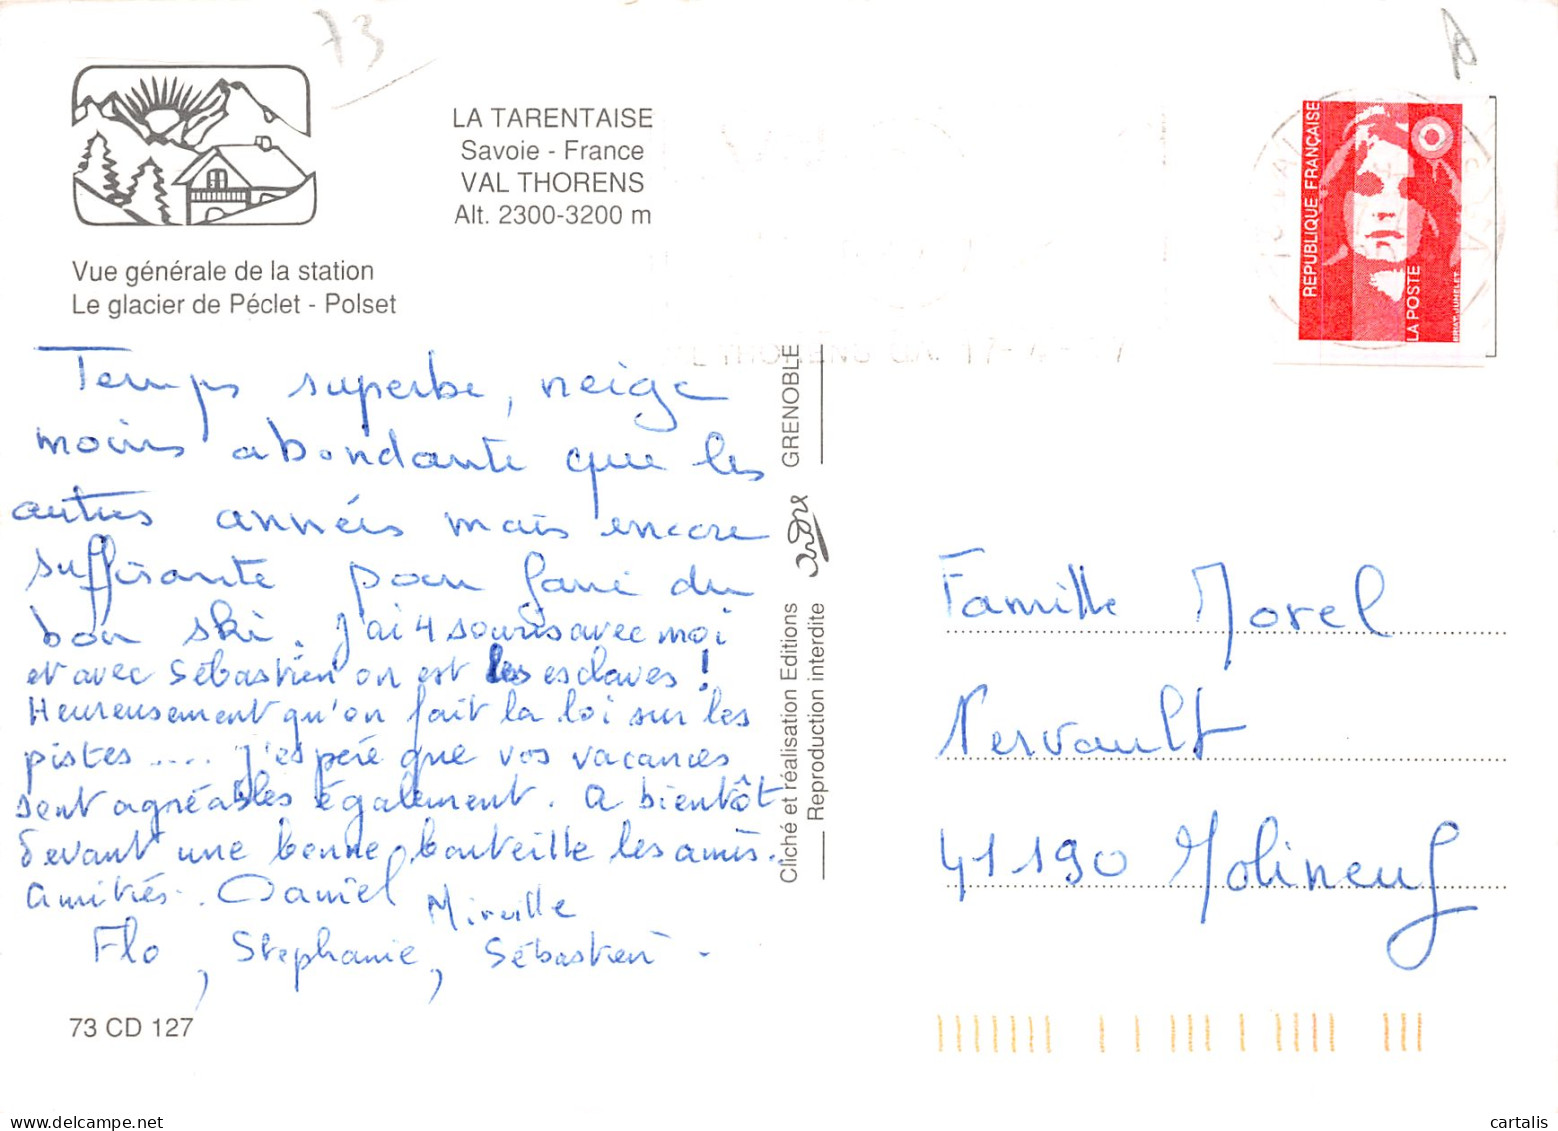 73
LA TARENTAISE
Savoie - France
VAL THORENS
Alt. 2300-3200 m
Vue générale de la station
Le glacier de Péclet - Polset
Temps superbe, neige
moins abondante que les
autres années mais encore
suffisante pour faire du
bon ski. J'ai 4 souris avec moi
et avec Sébastien on est les esclaves !
Heureusement qu'on fait la loi sur les
pistes .... J'espère que vos vacances
sent agréables également. A bientôt
devant une bonne bouteille les amis.
Amitiés. Daniel
Mireille
Flo, Stéphanie, Sébastien -
73 CD 127
Cliché et réalisation Editions
GRENOBLE
Reproduction interdite
REPUBLIQUE FRANÇAISE
LA POSTE
Famille Morel
Nervault
41190 Molineuf
cartalis